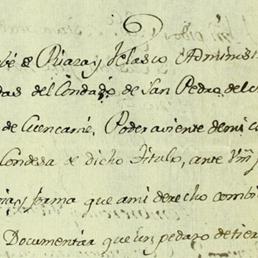 6
be de Riaza y Velasco Adminis
das del Condado de San Pedro del
de Cuencamé, Poder aviente de mi
Condesa de dicho Titulo, ante Vm
y forma que ami derecho combi
Documentar que un pedazo de tier